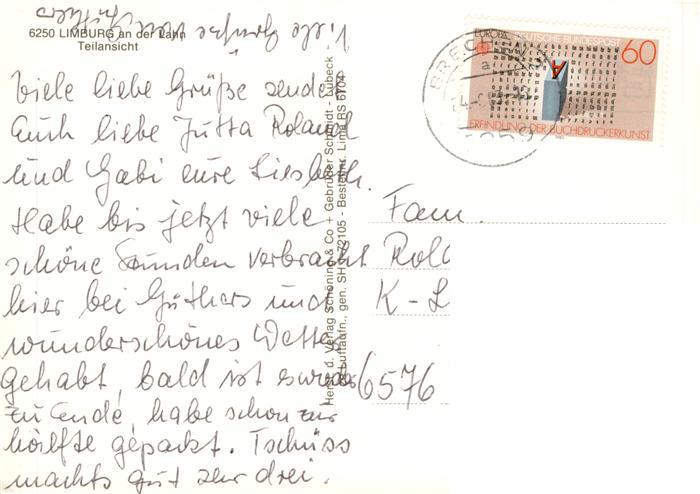 6250 LIMBURG an der Lahn
Teilansicht
Viele liebe Grüße sendet
Euch liebe Jutta Roland
und Gabi eure Liesbeth.
Habe bis jetzt viele
schöne Stunden verbracht
hier bei Güthers und
wunderschönes Wetter
gehabt, bald ist es wieder
zu Ende, habe schon zur
hälfte gepackt. Tschüss
machts gut ihr drei.
Viele Grüße von
Herst. u. Verlag Schöning & Co + Gebrüder Schmidt - Lübeck
Luftaufn., gen. SH 2105 - Bestellnr. Lima RS 6704
EUROPA DEUTSCHE BUNDESPOST
60
A
ERFINDUNG DER BUCHDRUCKERKUNST
1983
BRECHEN
a
Fam.
Rol
K-L
6576